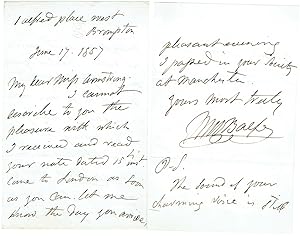 1 Alfred place West
Brompton
June 17. 1857
My dear Miss Armstrong.
I cannot
describe to you the
pleasure with which
I received and read
your note dated 15th inst
come to London as soon
as you can. let me
know the day you arrive,
pleasant evening
I passed in your society
at Manchester.
Yours most truly
MWBalfe
P.S.
The sound of your
charming voice is still